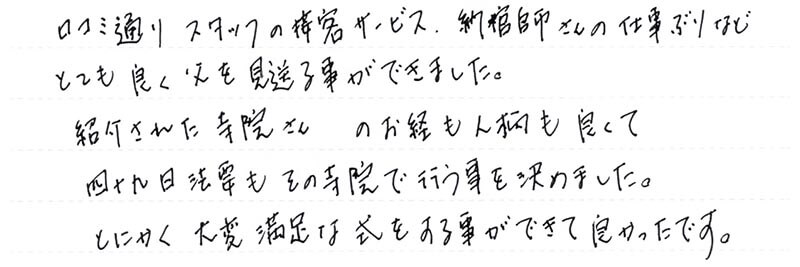 口コミ通り スタッフの接客サービス、納棺師さんの仕事ぶりなど
とても良く父を見送る事ができました。
紹介された寺院さん のお経も人柄も良くて
四十九日法要もその寺院で行う事を決めました。
とにかく大変満足な式をする事ができて良かったです。